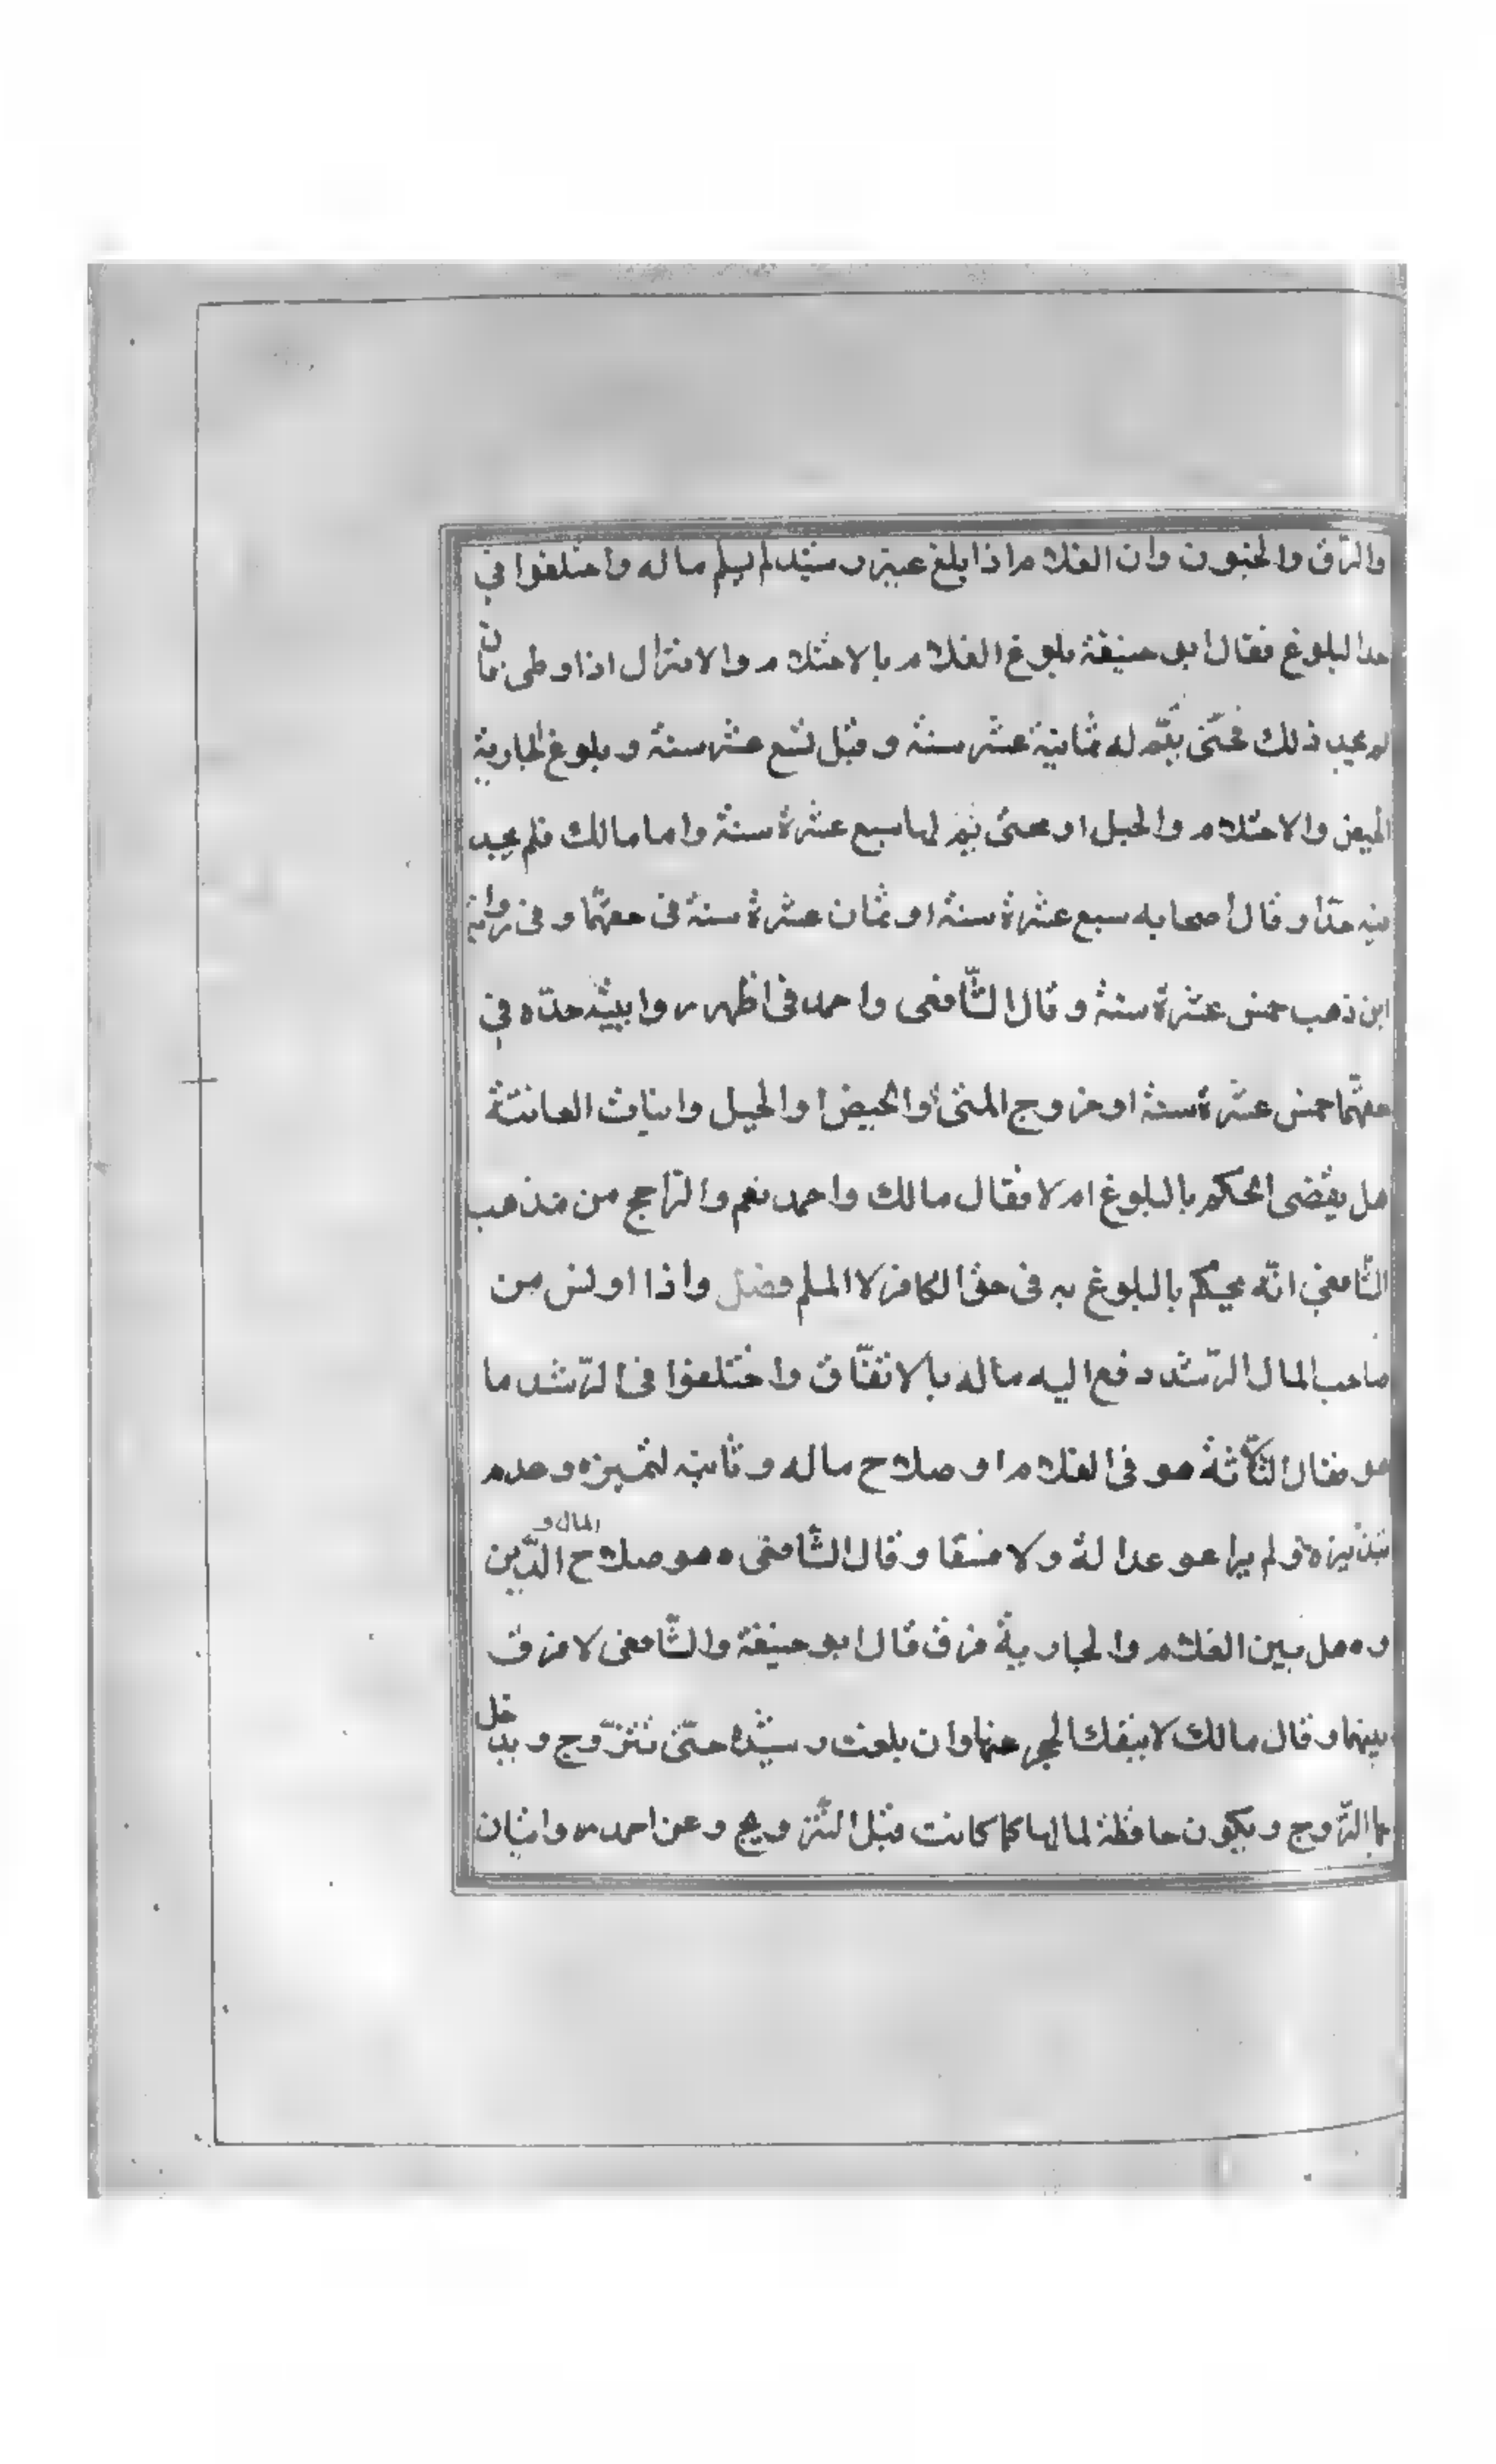 والرّق والجنون وان الغلام اذا بلغ غير رشيد لم يسلم ماله واختلفوا في
حد البلوغ فقال ابو حنيفة بلوغ الغلام بالاحتلام والانزال اذا وطى فان
لم يجد ذلك فحتّى يتّم له ثمانية عشر سنة وقيل تسع عشر سنة وبلوغ الجارية
الحيض والاحتلام والحبل او حتى يتم لها سبع عشرة سنة واما مالك فلم يجد
فيه حدّا وقال اصحابه سبع عشرة سنة او ثمان عشرة سنة فى حقهّما وفى رواية
ابن ذهب خمس عشرة سنة وقال الشّافعى واحمد فى اظهر روايتيه حدّه في
حقهّما خمس عشرة سنة او خروج المنى او الحيض او الحبل وانبات العانتة
هل يقضى الحكم بالبلوغ ام لا فقال مالك واحمد نعم والرّاجح من مذهب
الشّافعي انّه يحكم بالبلوغ به فى حق الكافر لا المسلم فصل واذا اونس من
صاحب المال الرّشد دفع اليه ماله بالاتفّاق واختلفوا فى الرّشد ما
هو فقال الثّلاثة هو فى الغلام اوصلاح ماله وثانيه لتميزه وعدم
تبذيره ولم يراعو عدالة ولا فسقا وقال الشّافعى ه هو صلاح المال و الدّين
وه هل بين الغلام والجارية فرق قال ابو حنيفة والشّافعى لا فرق
بينهما وقال مالك لا ينفك الحجر عنها وان بلغت رشيدة حتّى تتزوّج ويدخل
بها الزّوج ويكون حافظة لمالها كما كانت قبل التّزويج وعن احمد روايتان